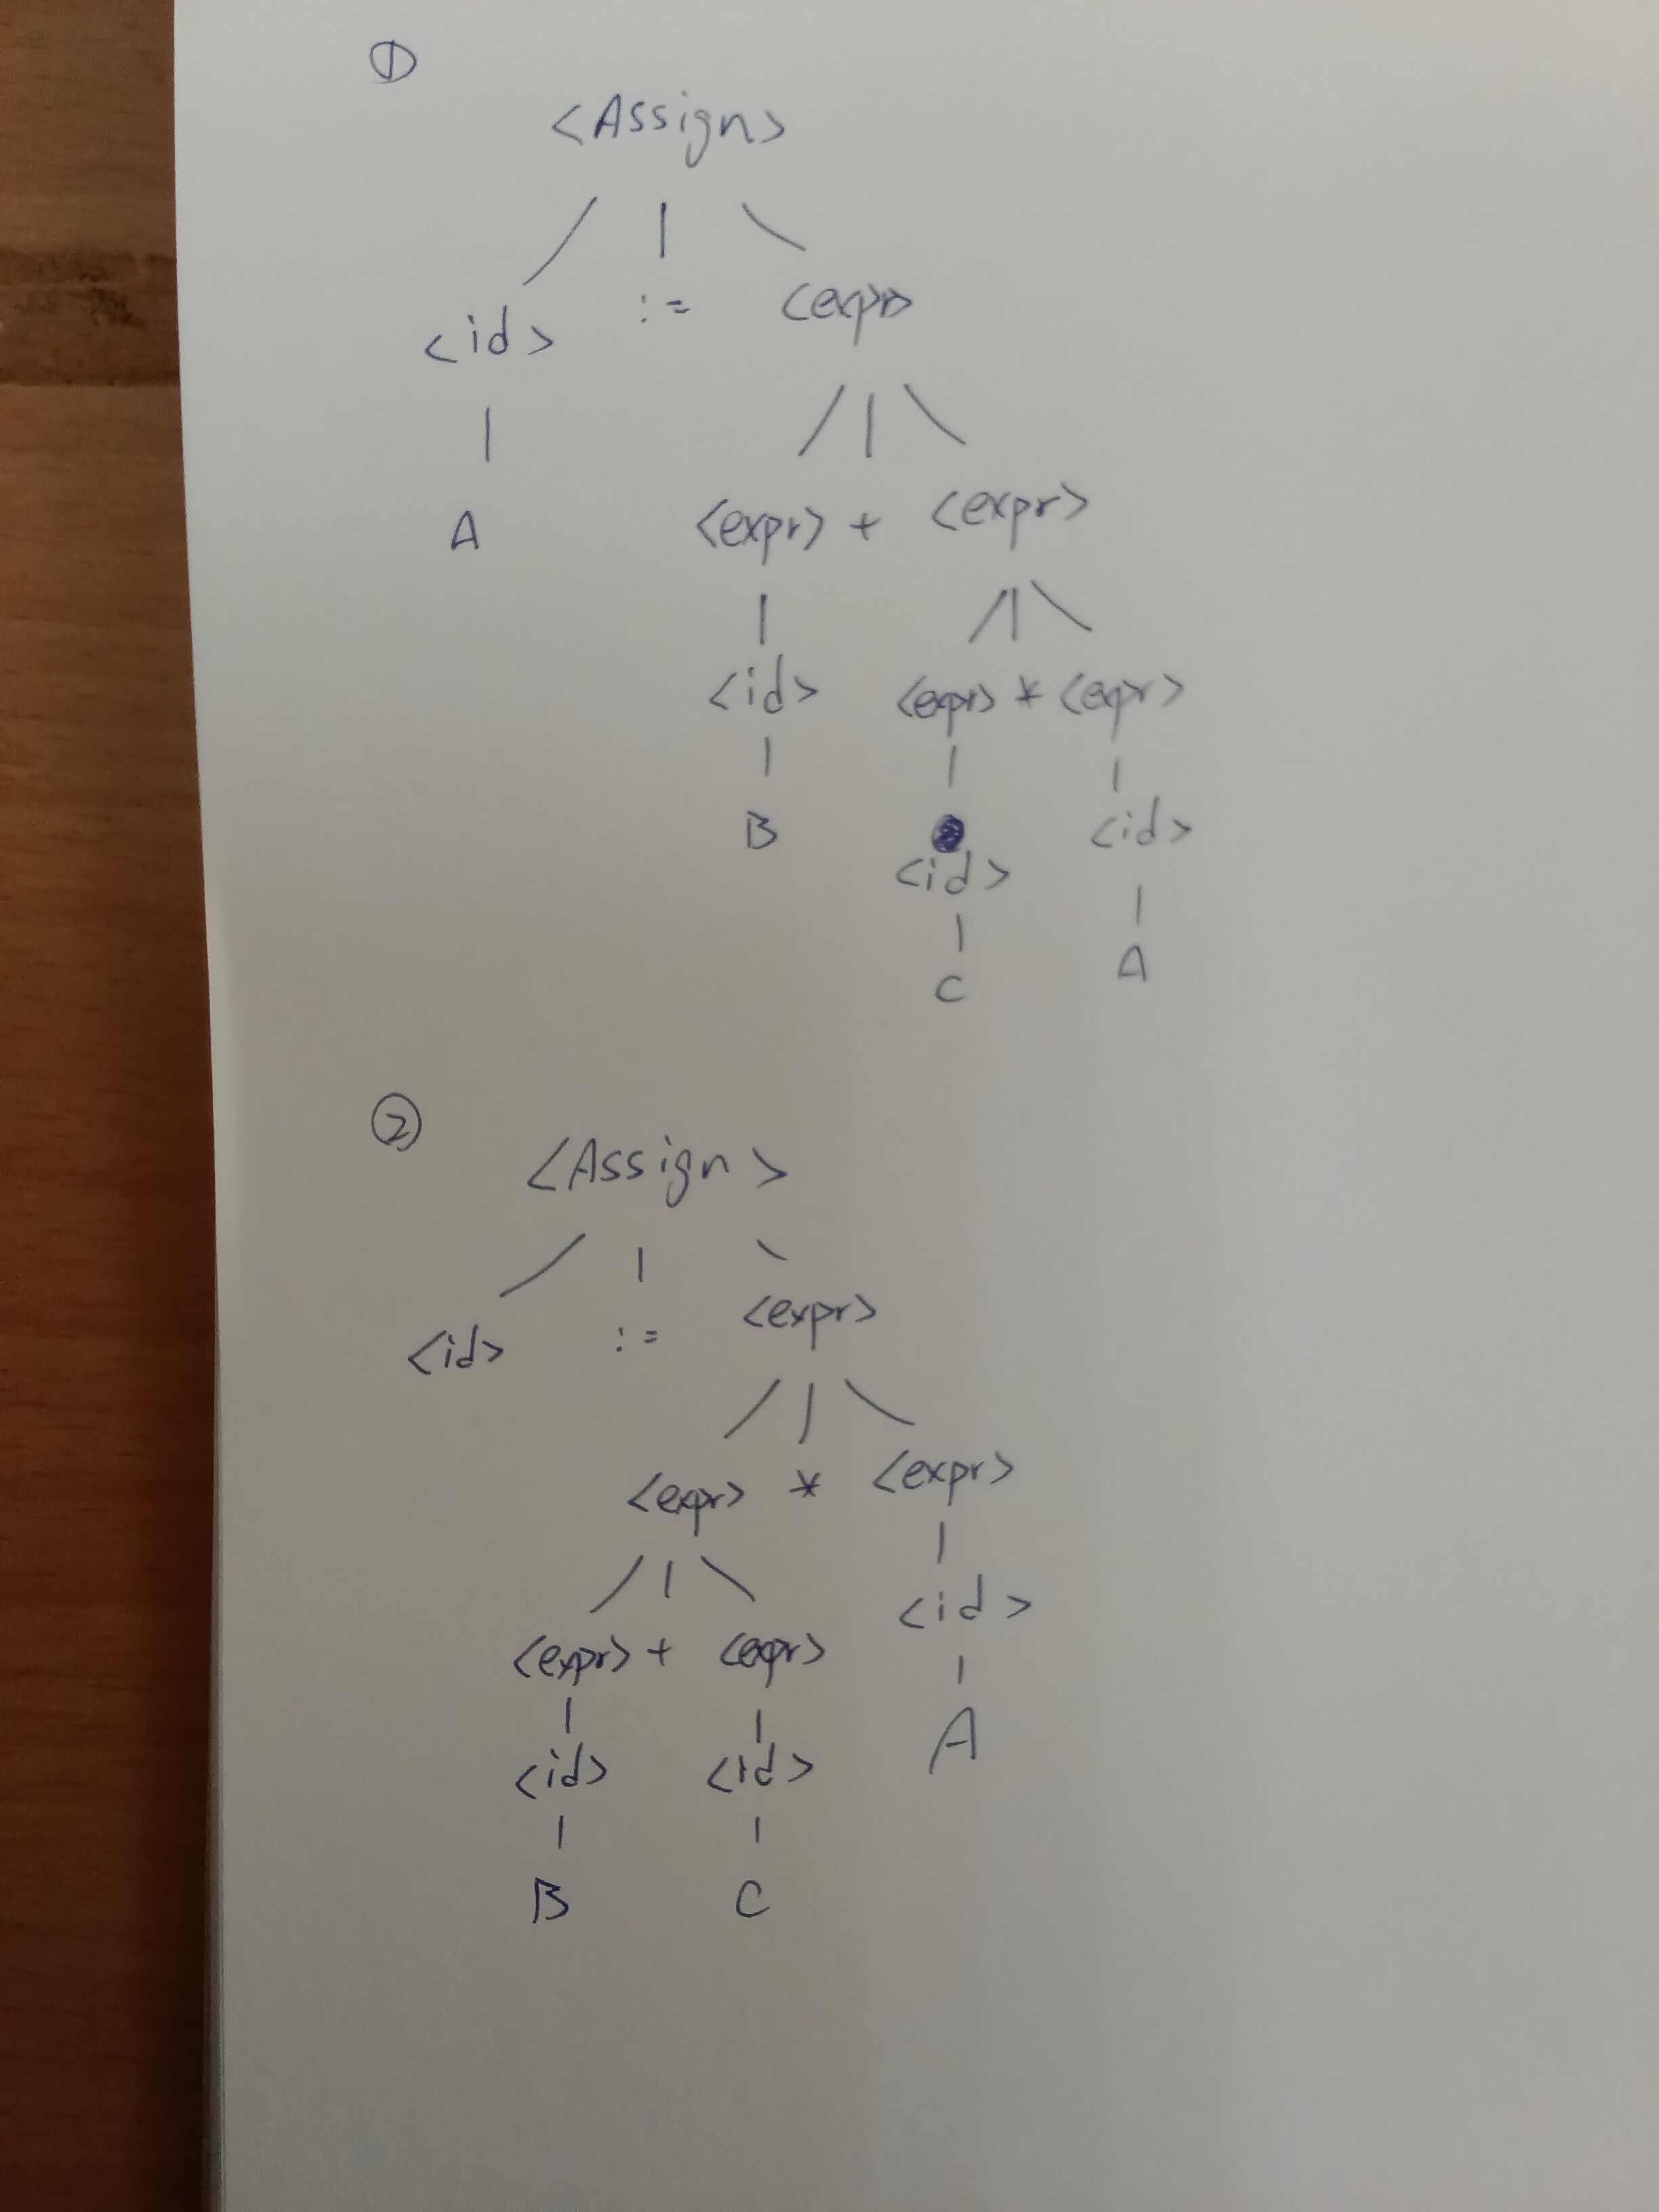 ①
<Assign>
<id> := <expr>
A <expr> + <expr>
<id> <expr> * <expr>
B <id> <id>
C A
②
<Assign>
<id> := <expr>
<expr> * <expr>
<expr> + <expr> <id>
<id> <id> A
B C